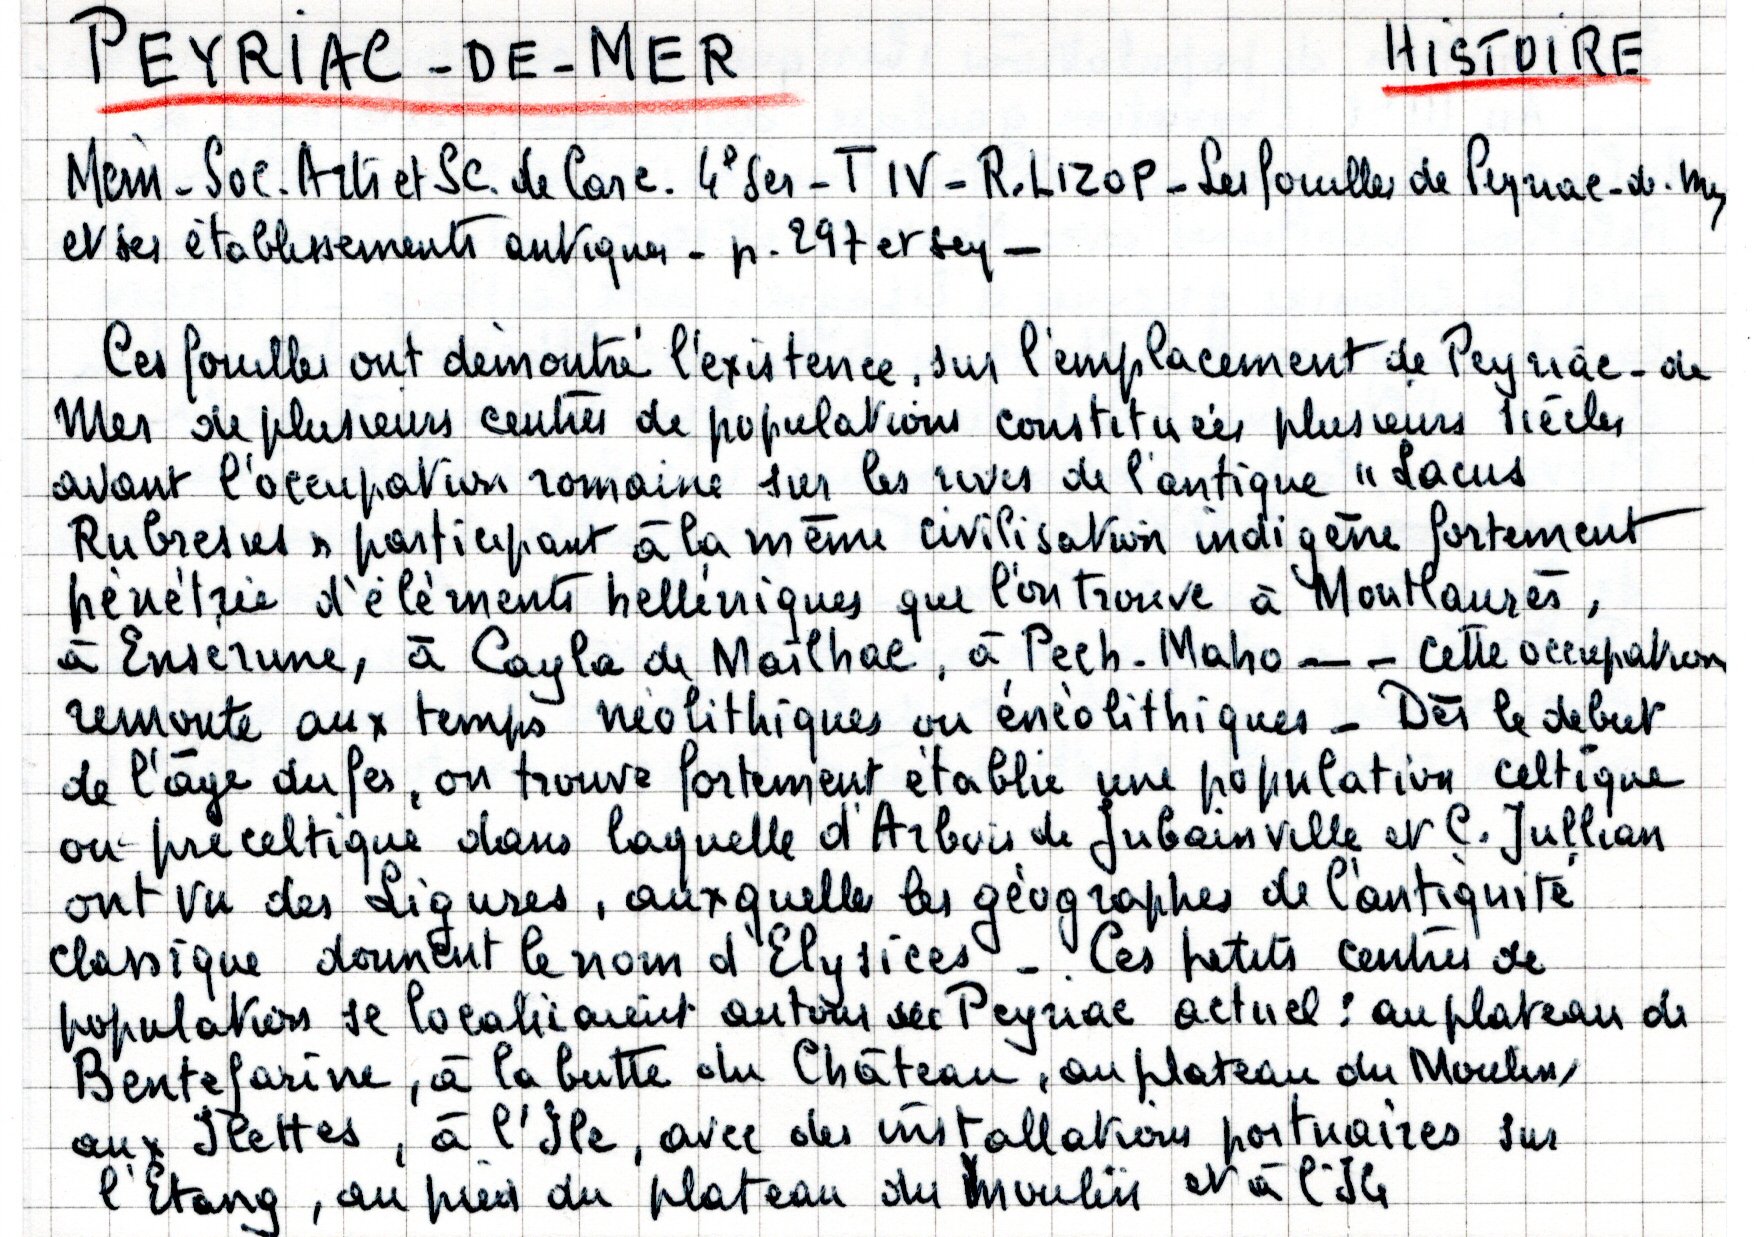 PEYRIAC-DE-MER
HISTOIRE
Mém - Soc. Arts et Sc. de Carc. 4° Ser - T IV - R. LIZOP - Les fouilles de Peyriac-de-Mer
et ses établissements antiques - p. 297 et seq -
Ces fouilles ont démontré l'existence, sur l'emplacement de Peyriac-de
Mer de plusieurs centres de populations constituées plusieurs siècles
avant l'occupation romaine sur les rives de l'antique "Lacus
Rubresus" participant à la même civilisation indigène fortement
pénétrée d'éléments helléniques que l'on trouve à Montlaurès,
à Ensérune, à Cayla de Mailhac, à Pech-Maho — - cette occupation
remonte aux temps néolithiques ou énéolithiques - Dès le début
de l'âge du fer, on trouve fortement établie une population celtique
ou préceltique dans laquelle d'Arbois de Jubainville et C. Jullian
ont vu des Ligures, auxquelles les géographes de l'antiquité
classique donnent le nom d'Elysices - Ces petits centres de
populations se localisaient autour de Peyriac actuel : au plateau de
Bentefarine, à la butte du Château, au plateau du Moulin,
aux Ilettes, à l'Ile, avec des installations portuaires sur
l'Etang, au pied du plateau du Moulin et à l'Ile